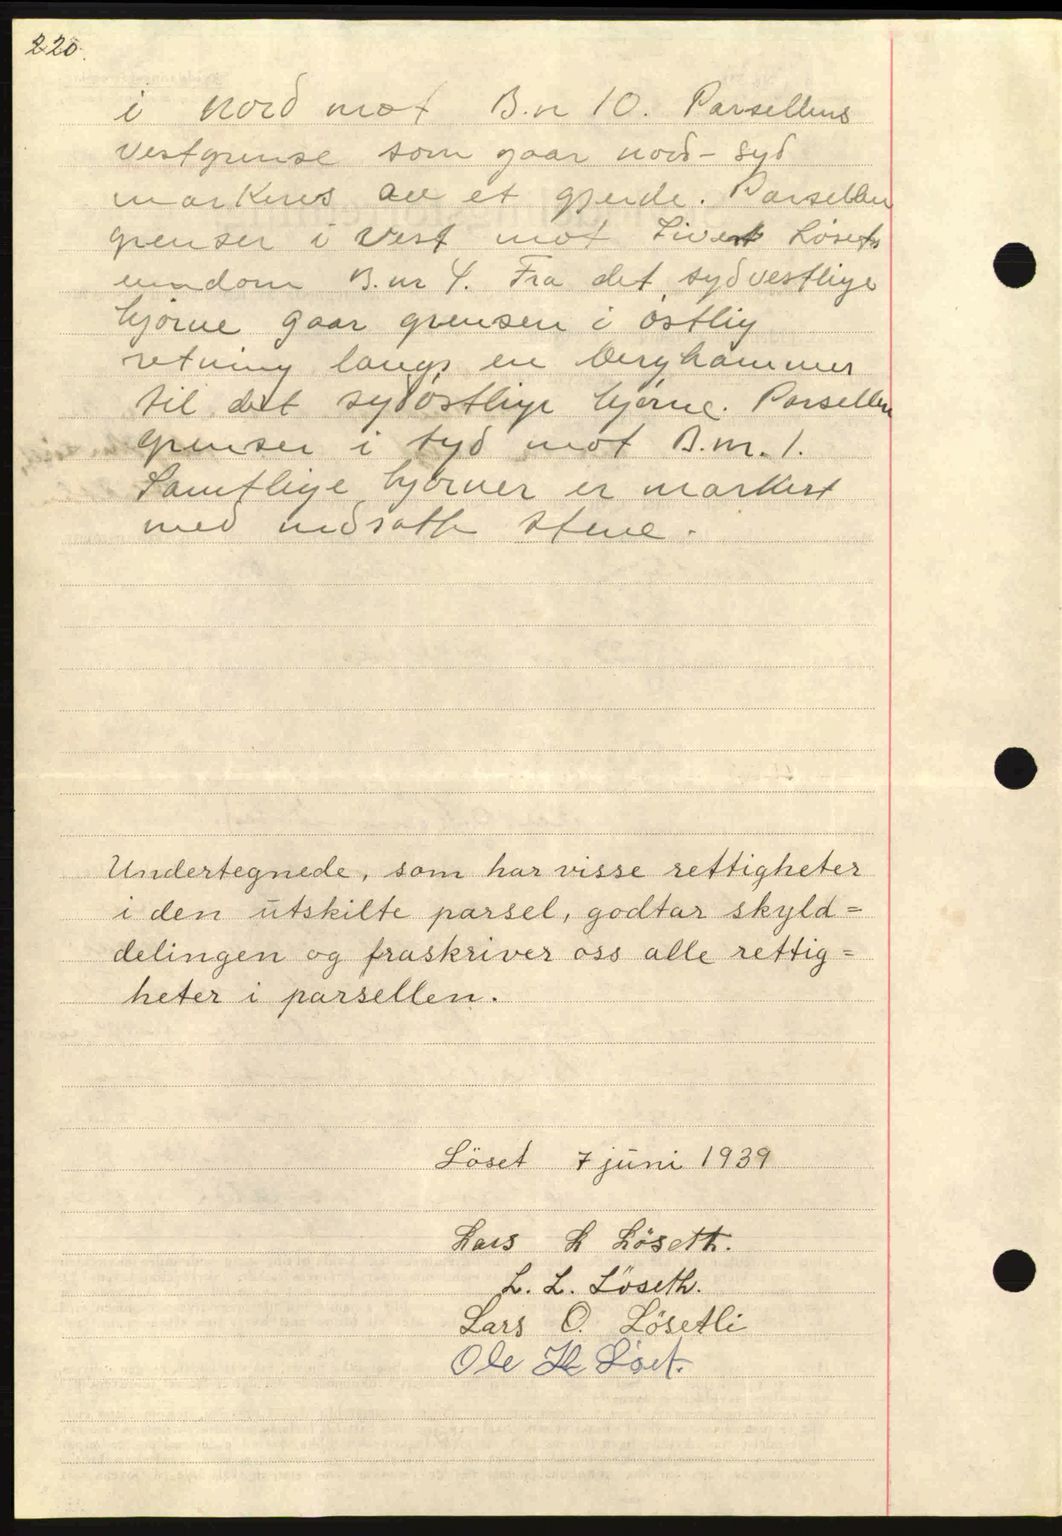 220.
i nord mot B.n 10. Parsellens
vestgrense som gaar nord - syd
markeres av et gjerde. Parsellen
grenser i vest mot Sivert Løsets
eiendom B.nr 4. Fra det sydvestlige
hjørne gaar grensen i østlig
retning langs en berghammer
til det sydöstlige hjørne. Parsellen
grenser i syd mot B.nr. 1.
Samtlige hjørner er markert
med nedsatte stene.
Undertegnede, som har visse rettigheter
i den utskilte parsel, godtar skyld=
delingen og fraskriver oss alle rettig=
heter i parsellen.
Löset 7 juni 1939
Lars L Löseth.
L. L. Löseth.
Lars O. Lösetli
Ole H Löset.